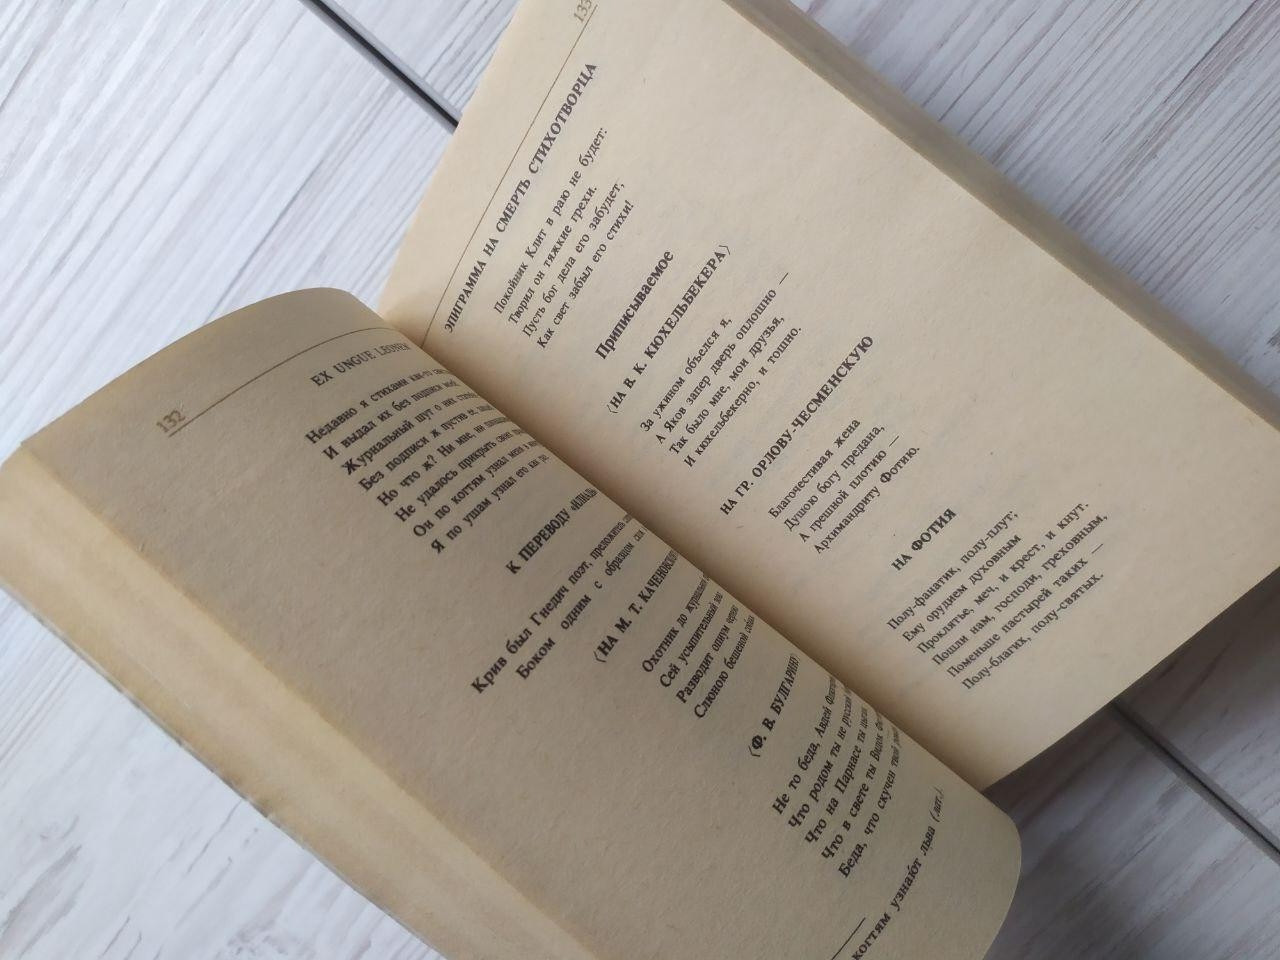 132
EX UNGUE LEONEM
Недавно я стихами как-то
И выдал их без подписи
Журнальный шут о них
Без подписи ж пустив
Но что ж? Ни мне, ни
Не удалось прикрыть своих
Он по когтям узнал меня в
Я по ушам узнал его как
К ПЕРЕВОДУ «ИЛИАДЫ
Крив был Гнедич поэт, преложитель
Боком одним с образцом
⟨НА М. Т. КАЧЕНОВСКО
Охотник до журнальной
Сей усыпительный
Разводит опиум чернил
Слюною бешеной собаки
⟨Ф. В. БУЛГАРИНУ⟩
Не то беда, Авдей
Что родом ты не русский
Что на Парнасе ты цыган
Что в свете ты Видок
Беда, что скучен твой
когтям узнают льва (лат.).
133
ЭПИГРАММА НА СМЕРТЬ СТИХОТВОРЦА
Покойник Клит в раю не будет:
Творил он тяжкие грехи.
Пусть бог дела его забудет,
Как свет забыл его стихи!
Приписываемое
⟨НА В. К. КЮХЕЛЬБЕКЕРА⟩
За ужином объелся я,
А Яков запер дверь оплошно —
Так было мне, мои друзья,
И кюхельбекерно, и тошно.
НА ГР. ОРЛОВУ-ЧЕСМЕНСКУЮ
Благочестивая жена
Душою богу предана,
А грешной плотию —
Архимандриту Фотию.
НА ФОТИЯ
Полу-фанатик, полу-плут;
Ему орудием духовным
Проклятье, меч, и крест, и кнут.
Пошли нам, господи, греховным,
Поменьше пастырей таких —
Полу-благих, полу-святых.